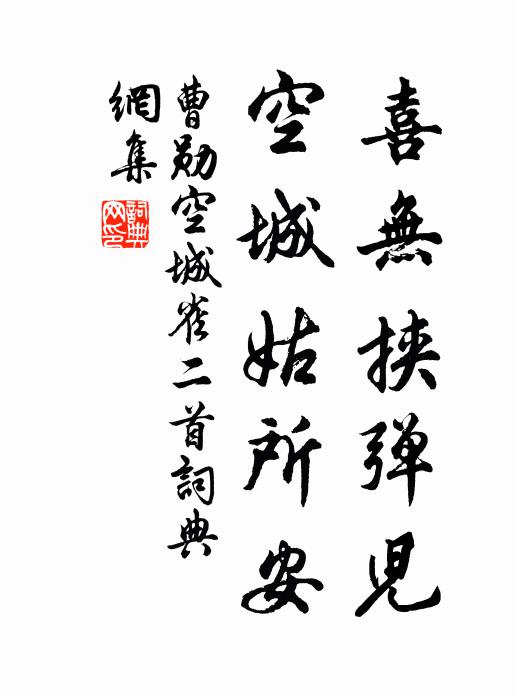 喜無挾彈兒
空城姑所安
曹勛空城雀二首詞典
網集
詞典
网印